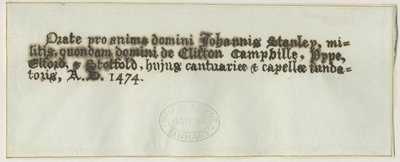 Orate pro anima domini Johannis Stanley, mi-
litis, quondam domini de Clifton Campville, Pype,
Elford, & Stotfold, hujus cantuariæ & capellæ funda-
toris, A. D. 1474.
LIBRARY